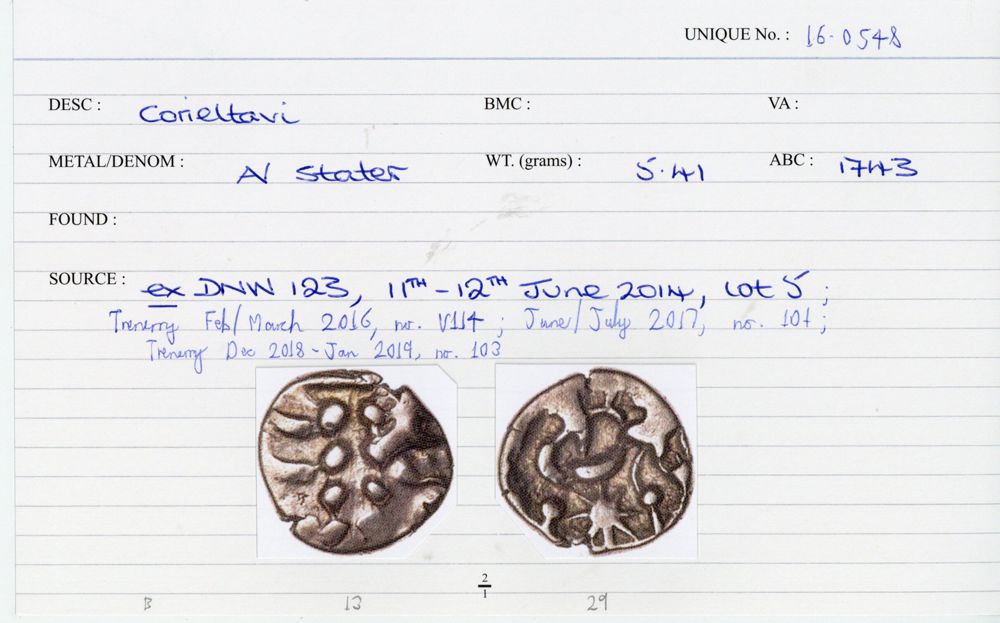 UNIQUE No. : 16-0548
DESC : Corieltavi BMC : VA :
METAL/DENOM : N Stater WT. (grams) : 5.41 ABC : 1743
FOUND :
SOURCE : ex DNW 123, 11TH-12TH June 2014, Lot 5 ;
Trenerry Feb/March 2016, no. V114 ; June/July 2017, no. 101 ;
Trenerry Dec 2018-Jan 2019, no. 103
2
1
B 13 29